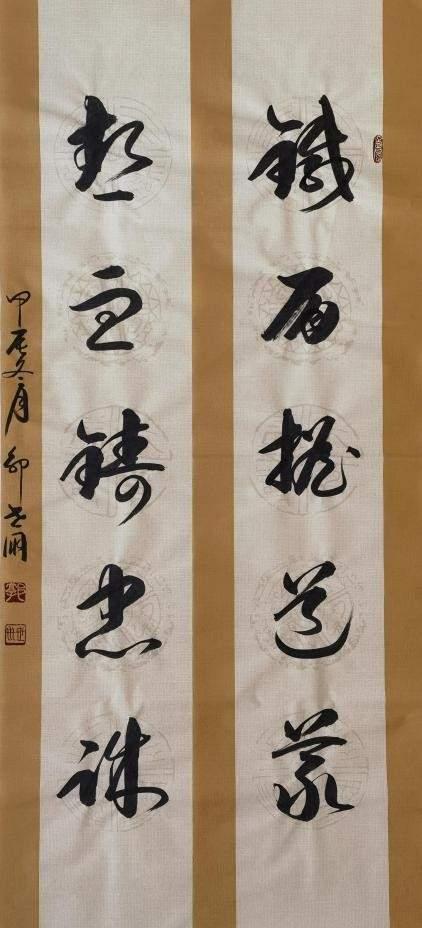 鐵肩擔道義
熱血鑄忠誠
甲辰冬月